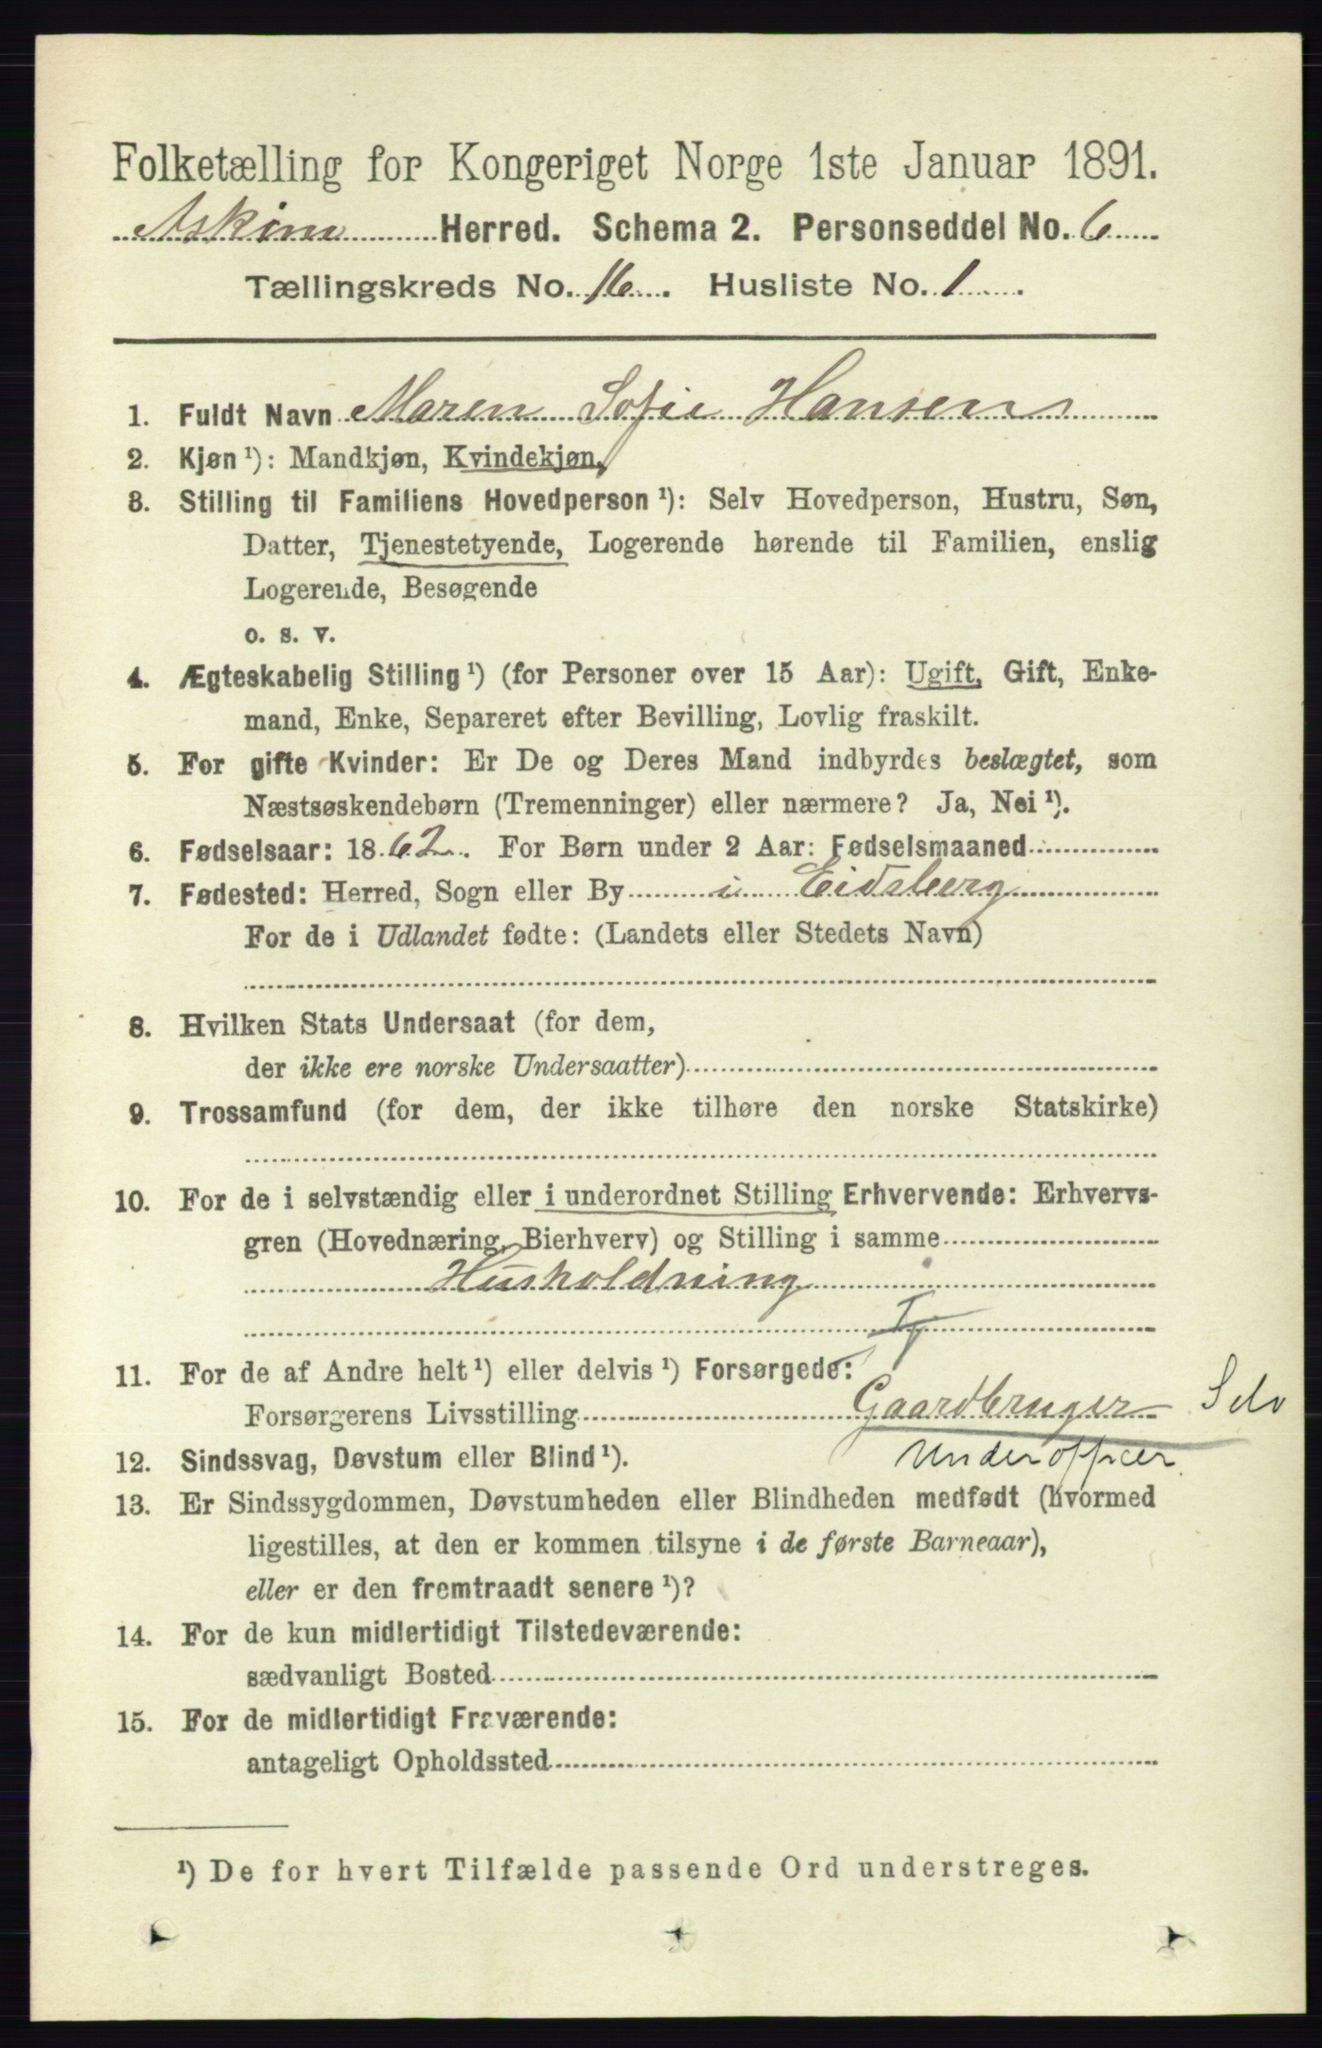 Folketælling for Kongeriget Norge 1ste Januar 1891.
Askim Herred. Schema 2. Personseddel No. 6
Tællingskreds No. 16. Husliste No. 1.
1. Fuldt Navn Maren Sofie Hansen
2. Kjøn ¹): Mandkjøn, Kvindekjøn,
3. Stilling til Familiens Hovedperson ¹): Selv Hovedperson, Hustru, Søn,
Datter, Tjenestetyende, Logerende hørende til Familien, enslig
Logerende, Besøgende
o. s. v.
4. Ægteskabelig Stilling ¹) (for Personer over 15 Aar): Ugift, Gift, Enke-
mand, Enke, Separeret efter Bevilling, Lovlig fraskilt.
5. For gifte Kvinder: Er De og Deres Mand indbyrdes beslægtet, som
Næstsøskendebørn (Tremenninger) eller nærmere? Ja, Nei ¹).
6. Fødselsaar: 1862. For Børn under 2 Aar: Fødselsmaaned
7. Fødested: Herred, Sogn eller By i Eidsberg
For de i Udlandet fødte: (Landets eller Stedets Navn)
8. Hvilken Stats Undersaat (for dem,
der ikke ere norske Undersaatter)
9. Trossamfund (for dem, der ikke tilhøre den norske Statskirke)
10. For de i selvstændig eller i underordnet Stilling Erhvervende: Erhvervs-
gren (Hovednæring, Bierhverv) og Stilling i samme
Husholdning
11. For de af Andre helt ¹) eller delvis ¹) Forsørgede:
Forsørgerens Livsstilling Gaardbruger Selv
Underofficer
12. Sindssvag, Døvstum eller Blind ¹).
13. Er Sindssygdommen, Døvstumheden eller Blindheden medfødt (hvormed
ligestilles, at den er kommen tilsyne i de første Barneaar),
eller er den fremtraadt senere ¹)?
14. For de kun midlertidigt Tilstedeværende:
sædvanligt Bosted
15. For de midlertidigt Fraværende:
antageligt Opholdssted
¹) De for hvert Tilfælde passende Ord understreges.